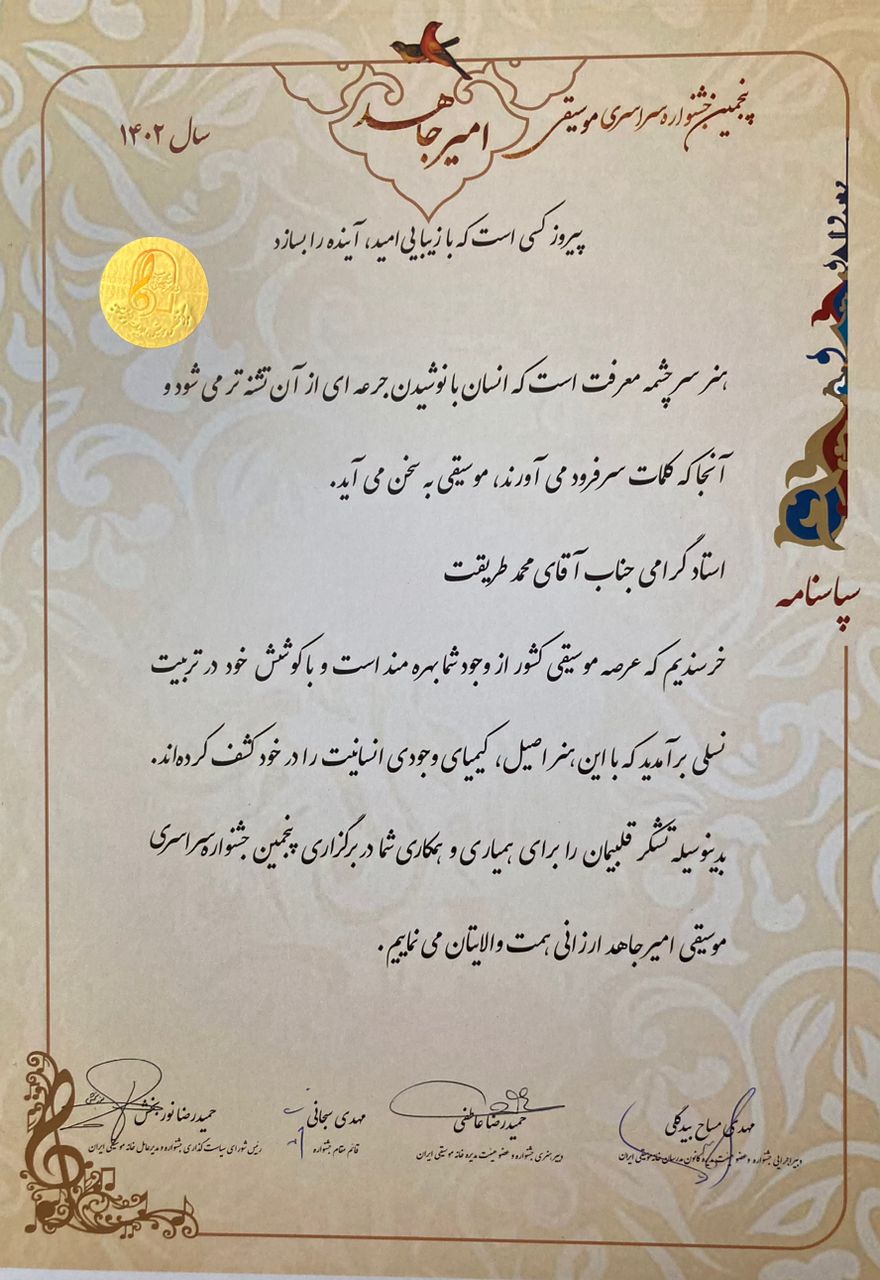 پنجمین جشنواره سراسری موسیقی
امیرجاهد
سال ۱۴۰۲
پیروز کسی است که با زیبایی امید، آینده را بسازد
هنر سرچشمه معرفت است که انسان با نوشیدن جرعه ای از آن تشنه تر می شود و
آنجا که کلمات سر فرود می آورند، موسیقی به سخن می آید.
استاد گرامی جناب آقای محمد طریقت
سپاسنامه
خرسندیم که عرصه موسیقی کشور از وجود شما بهره مند است و با کوشش خود در تربیت
نسلی برآمدید که با این هنر اصیل، کیمیای وجودی انسانیت را در خود کشف کرده‌اند.
بدینوسیله تشکر قلبیمان را برای همیاری و همکاری شما در برگزاری پنجمین جشنواره سراسری
موسیقی امیرجاهد ارزانی همت والایتان می نماییم.
مهدی مساح بیدگلی
دبیر اجرایی جشنواره و عضو هیئت مدیره کانون مدرسان خانه موسیقی ایران
حمیدرضا عاطفی
دبیر هنری جشنواره و عضو هیئت مدیره خانه موسیقی ایران
مهدی سجانی
قائم مقام جشنواره
حمیدرضا نوربخش
رئیس شورای سیاست گذاری جشنواره و مدیرعامل خانه موسیقی ایران